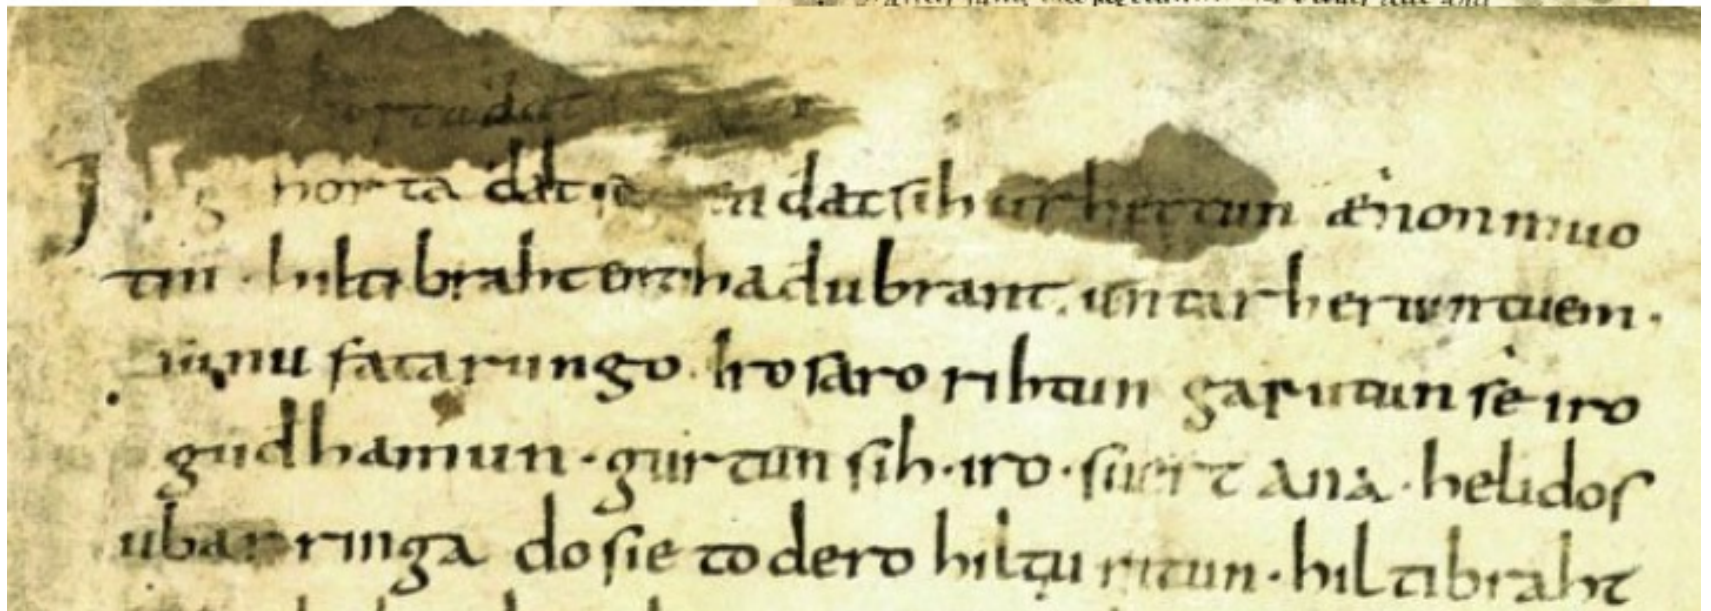 horta dat dat sih urhettun ænon muo
tin · hiltibraht enti hadubrant · untar heriun tuem ·
sunu fatarungo · iro saro rihtun garutun se iro
gudhamun · gurtun sih · iro · suert ana · helidos
ubar ringa do sie to dero hiltu ritun · hiltibraht